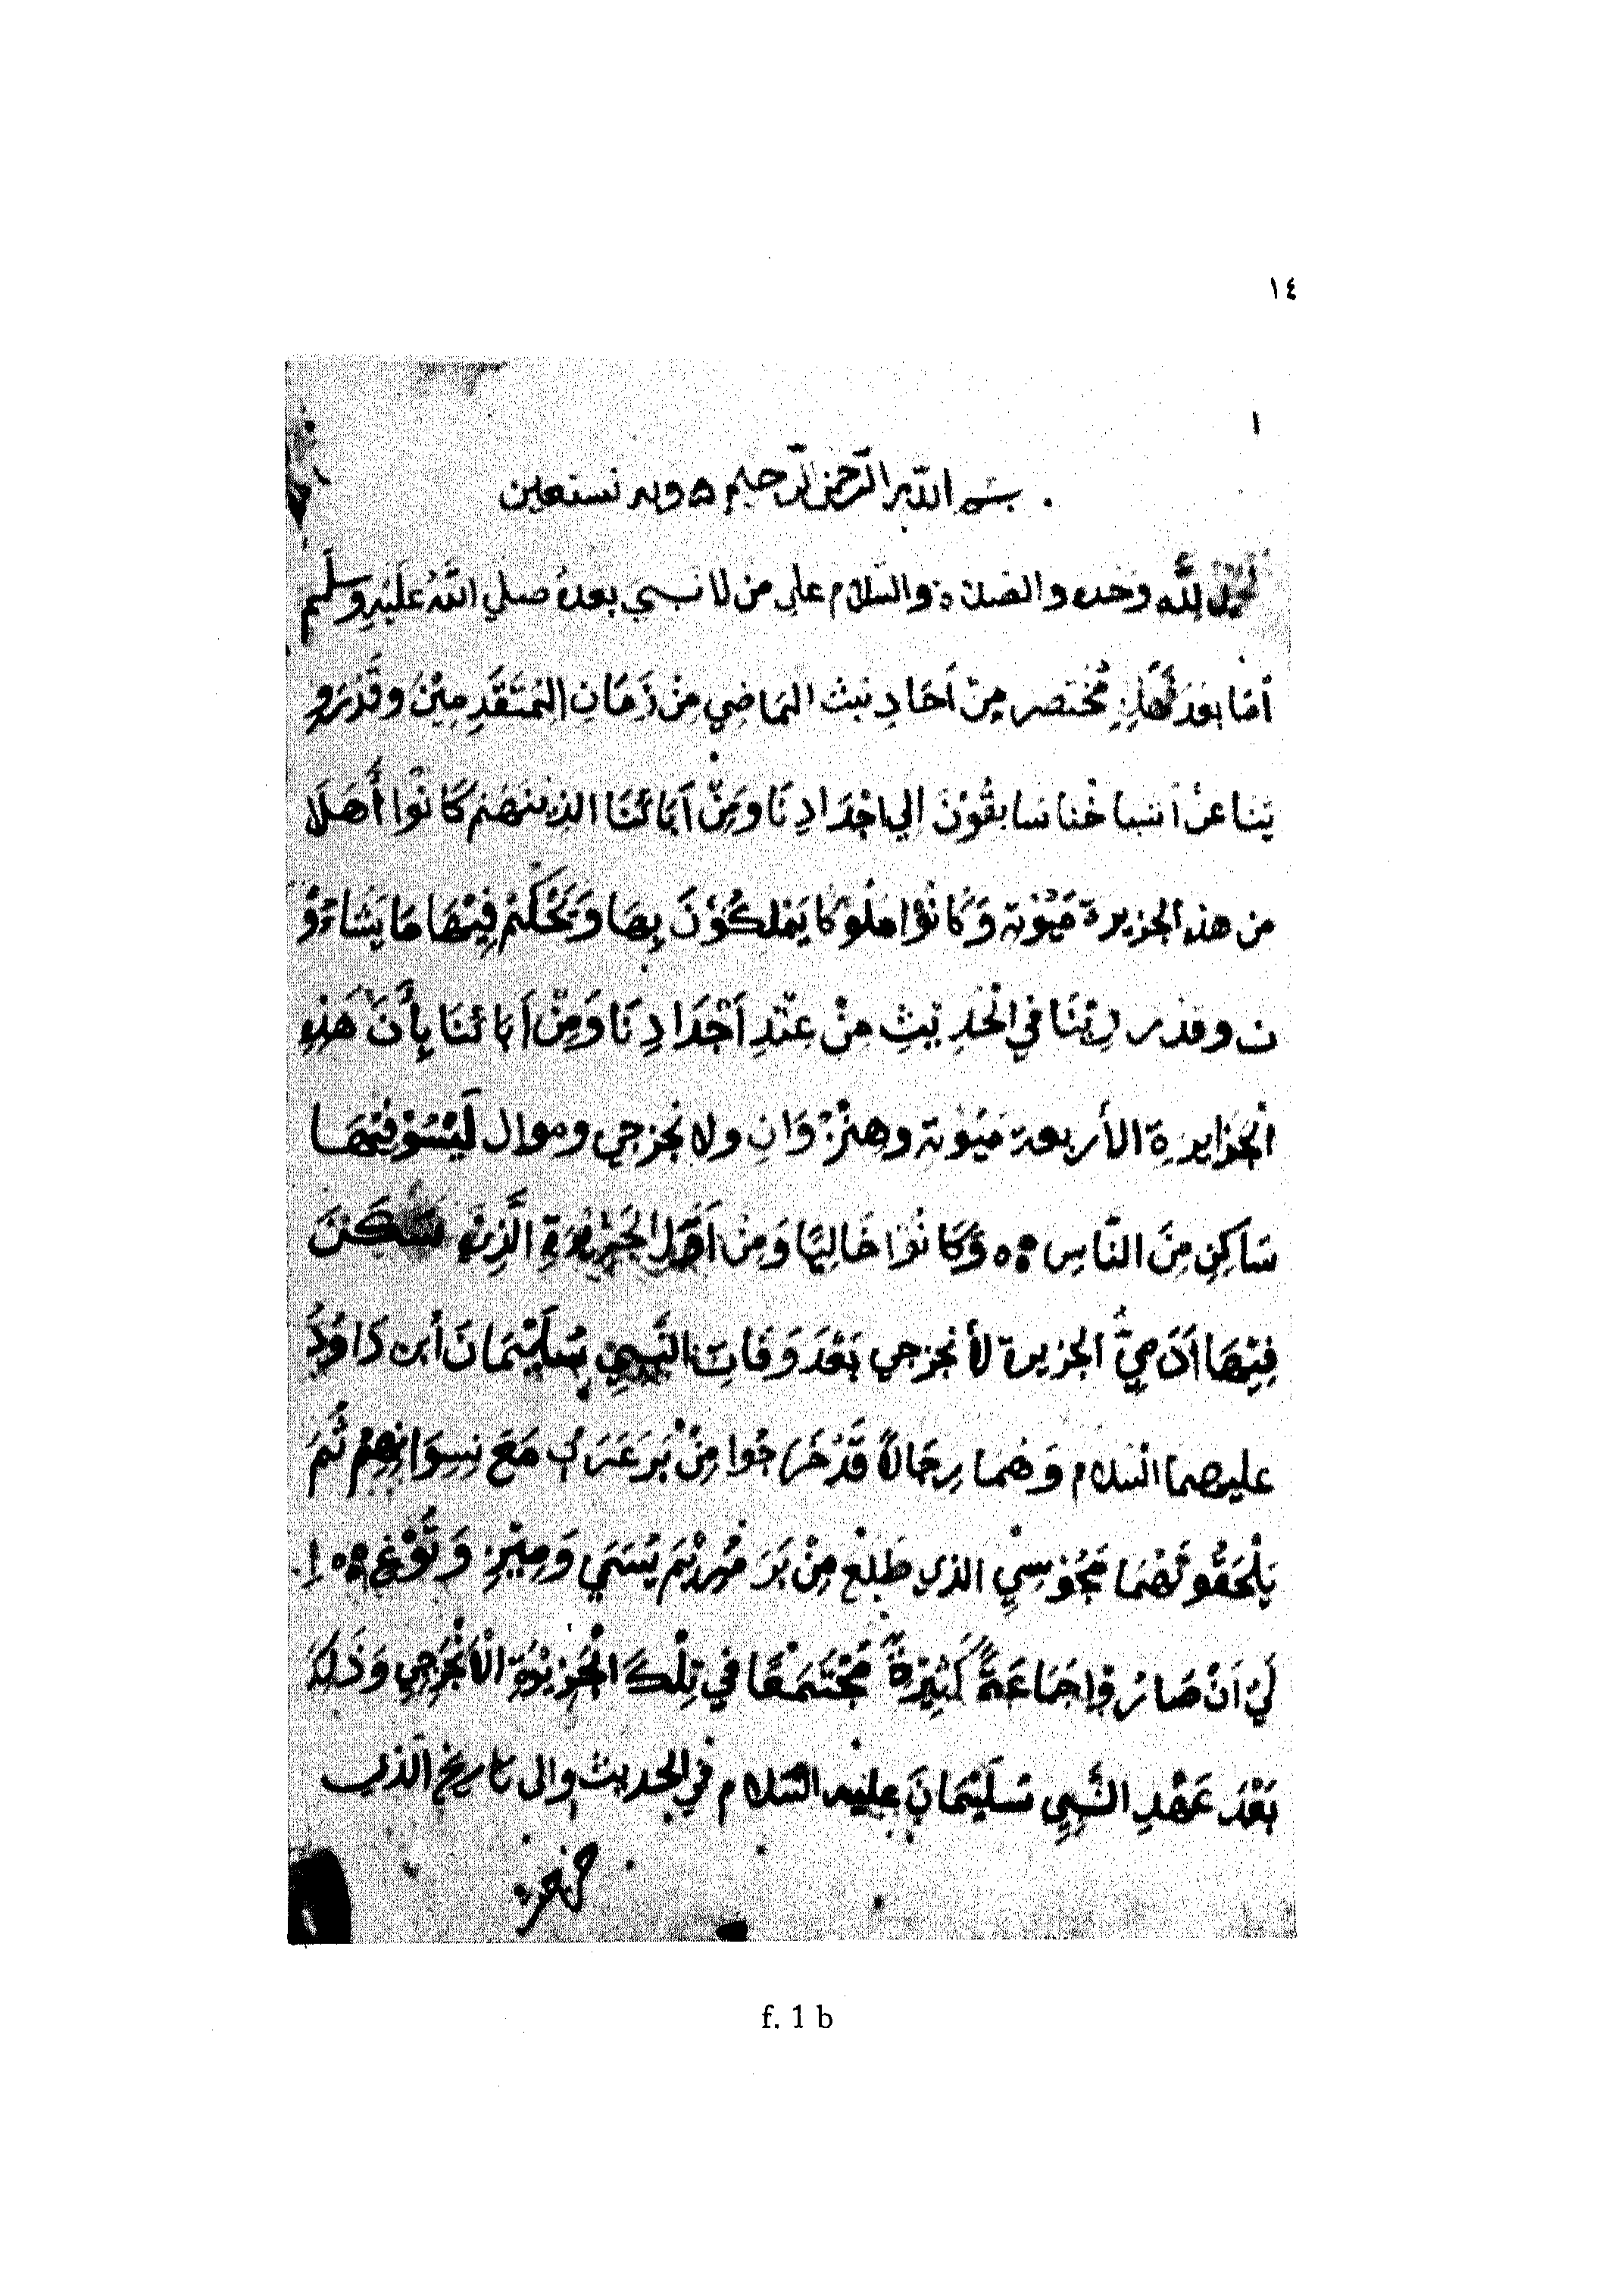 ١٤
١
بسم الله الرحمن الرحيم ه وبه نستعين
لله وحده والصلاة والسلام على من لا نبي بعده صلي اللَّهُ عَلَيْهِ وَسَلَّم
أَمَّا بَعْدَ مُخْتصر مِنْ أَحَادِيْث المَاضِي مِنْ زَمَانِ المُتَقَدِّمِيْنَ وَقَدْ رَوِ
يَنا عَنْ أشياخنا سَابِقُوْنَ الي اجْدَادِنَا وَمِنْ آبَائنَا الذينهَم كَانُوا أَهْلَ
من هذه الجزيرة مَيُوْتة وَكَانُوْا ملُوْكا يَمْلِكُوْنَ بِهَا وَيَحْكُمْ فِيْهَا مَا يَشَاءُو
ن وقدر رِيْنَا فِي الْحَدِيْثِ مِنْ عِنْدِ أَجْدَادِنَا وَمِنْ آبَائنَا بِأَنَّ هَذِهِ
الْجَزَايرة الأَربعة مَيُوْتة وهِنْزُوَانِ ولا نْجزجي وموال لَيْسُوْ فِيْهَا
سَاكِنِ مِنَ النَّاسِ ه ه وَكَانُوْا خَالِيًا وَمِنْ أَهْلِ الْجَزِيْرَةِ الَّذِيْ سَكَنَ
فِيْهَا أدَمِيُّ الجزيرة لأنْجزجي بَعْدَ وَفَاتِ النَّبِيِّ سُلَيْمَانَ أبن دَاوُدُ
عليهما السَلام وَهُمَا رِجَالاً قَدْ خَرَاجُوا مِنْ بَر عَرَب مَعَ نِسوَانِهِمْ ثُمَّ
يَلْحَقُوْنَهُمَا مَجُوْسِي الذي طَلِعَ مِنْ بَرَ مُرِيْمَ يُسَمَي وَمِيْزِ وَتَوْغ ه ه إِ
لَيْ اَنْ صَارُوا جَمَاعَةً كَثِيْرَةً مُجْتَمَعًا فِي تِلْكَ الْجَزِيْرَةِ الْأَنْجَزِجِي وَذَلِكَ
بَعْدَ عَهْدِ النَّبِيِ سُلَيْمَانَ عليه السَّلام فِي الحديث والى تاريخ الّذي
f. 1 b